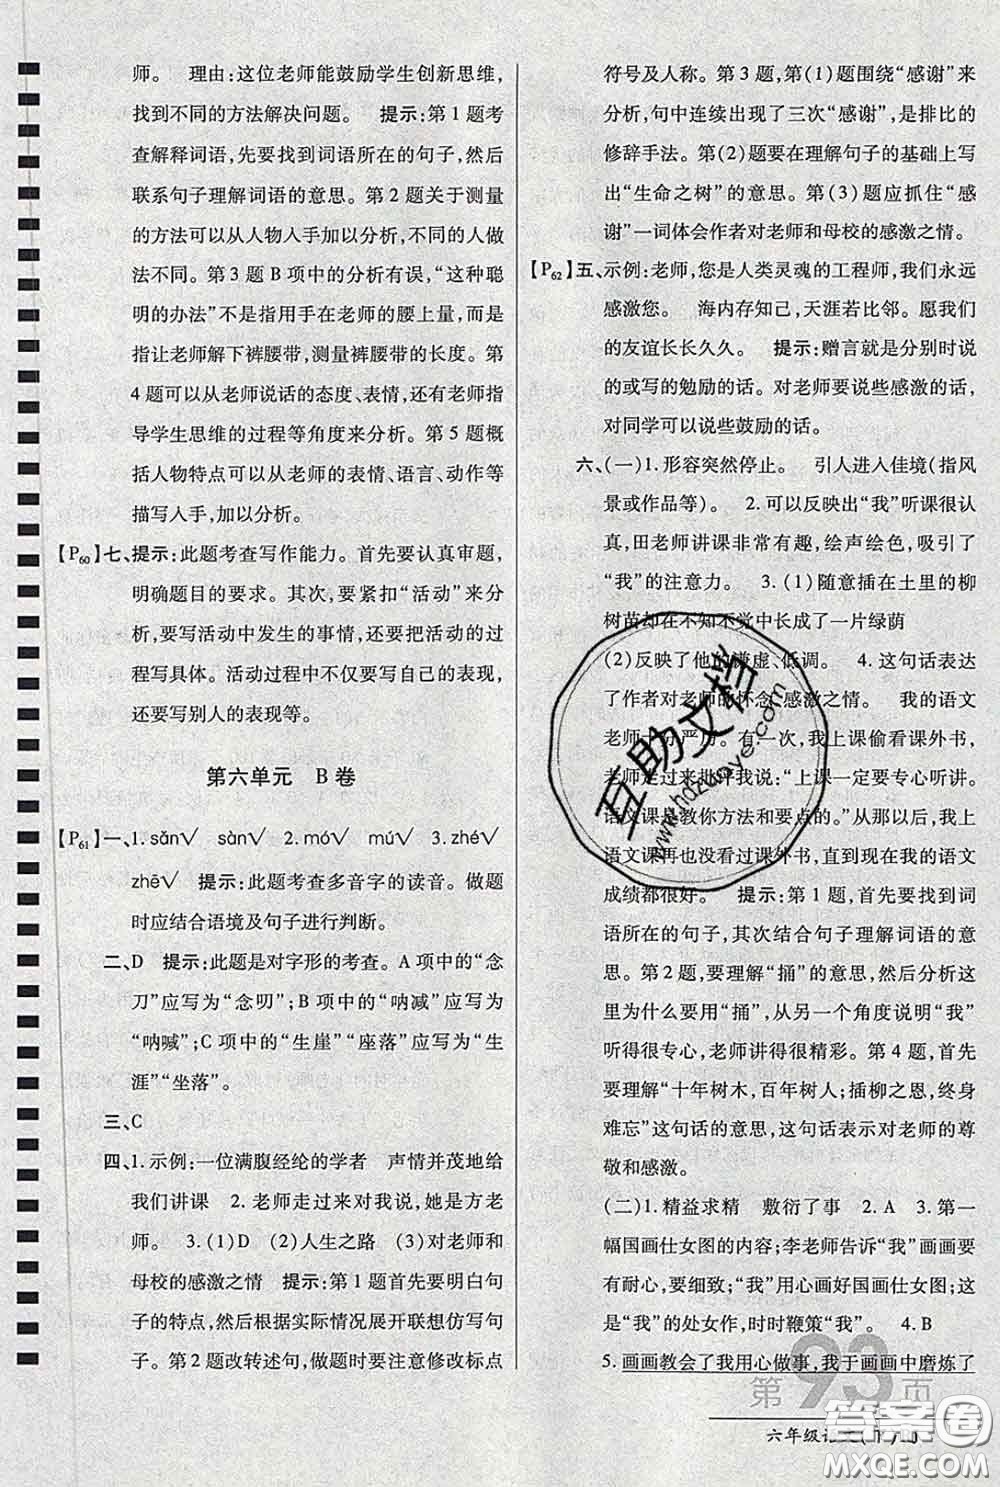 师。　理由:这位老师能鼓励学生创新思维,
找到不同的方法解决问题。　提示:第1题考
查解释词语,先要找到词语所在的句子,然后
联系句子理解词语的意思。第2题关于测量
的方法可以从人物入手加以分析,不同的人做
法不同。第3题B项中的分析有误,“这种聪
明的办法”不是指用手在老师的腰上量,而是
指让老师解下裤腰带,测量裤腰带的长度。第
4题可以从老师说话的态度、表情,还有老师指
导学生思维的过程等角度来分析。第5题概
括人物特点可以从老师的表情、语言、动作等
描写入手,加以分析。
【P60】七、提示:此题考查写作能力。首先要认真审题,
明确题目的要求。其次,要紧扣“活动”来分
析,要写活动中发生的事情,还要把活动的过
程写具体。活动过程中不仅要写自己的表现,
还要写别人的表现等。
第六单元　B卷
【P61】一、1. sǎn√　sàn√　2. mó√　mú√　3. zhé√
zhē√　提示:此题考查多音字的读音。做题
时应结合语境及句子进行判断。
二、D　提示:此题是对字形的考查。A项中的“念
刀”应写为“念叨”;B项中的“呐减”应写为
“呐喊”;C项中的“生崖”“座落”应写为“生
涯”“坐落”。
三、C
四、1. 示例:一位满腹经纶的学者　声情并茂地给
我们讲课　2. 老师走过来对我说,她是方老
师。　3. (1)D　(2)人生之路　(3)对老师和
母校的感激之情　提示:第1题首先要明白句
子的特点,然后根据实际情况展开联想仿写句
子。第2题改转述句,做题时要注意修改标点
符号及人称。第3题,第(1)题围绕“感谢”来
分析,句中连续出现了三次“感谢”,是排比的
修辞手法。第(2)题要在理解句子的基础上写
出“生命之树”的意思。第(3)题应抓住“感
谢”一词体会作者对老师和母校的感激之情。
【P62】五、示例:老师,您是人类灵魂的工程师,我们永远
感激您。　海内存知己,天涯若比邻。愿我们
的友谊长长久久。　提示:赠言就是分别时说
的或写的勉励的话。对老师要说些感激的话,
对同学可以说些鼓励的话。
六、(一)1. 形容突然停止。　引人进入佳境(指风
景或作品等)。　2. 可以反映出“我”听课很认
真,田老师讲课非常有趣,绘声绘色,吸引了
“我”的注意力。　3. (1)随意插在土里的柳
树苗却在不知不觉中长成了一片绿荫
(2)反映了他的谦虚、低调。　4. 这句话表达
了作者对老师的怀念、感激之情。　我的语文
老师十分严厉。有一次,我上课偷看课外书,
老师走过来批评我说:“上课一定要专心听讲。
语文课是教你方法和要点的。”从那以后,我上
语文课再也没看过课外书,直到现在我的语文
成绩都很好。　提示:第1题,首先要找到词
语所在的句子,其次结合句子理解词语的意
思。第2题,要理解“捅”的意思,然后分析这
里为什么要用“捅”,从另一个角度说明“我”
听得很专心,老师讲得很精彩。第4题,首先
要理解“十年树木,百年树人;插柳之恩,终身
难忘”这句话的意思,这句话表示对老师的尊
敬和感激。
(二)1. 精益求精　敷衍了事　2. A　3. 第一
幅国画仕女图的内容;李老师告诉“我”画画要
有耐心,要细致;“我”用心画好国画仕女图;这
是“我”的处女作,时时鞭策“我”。　4. B
5. 画画教会了我用心做事,我于画画中磨炼了
第93页
六年级语文(下)
互助文档
www.hdzuoye.com
答案圈
MXQE.COM